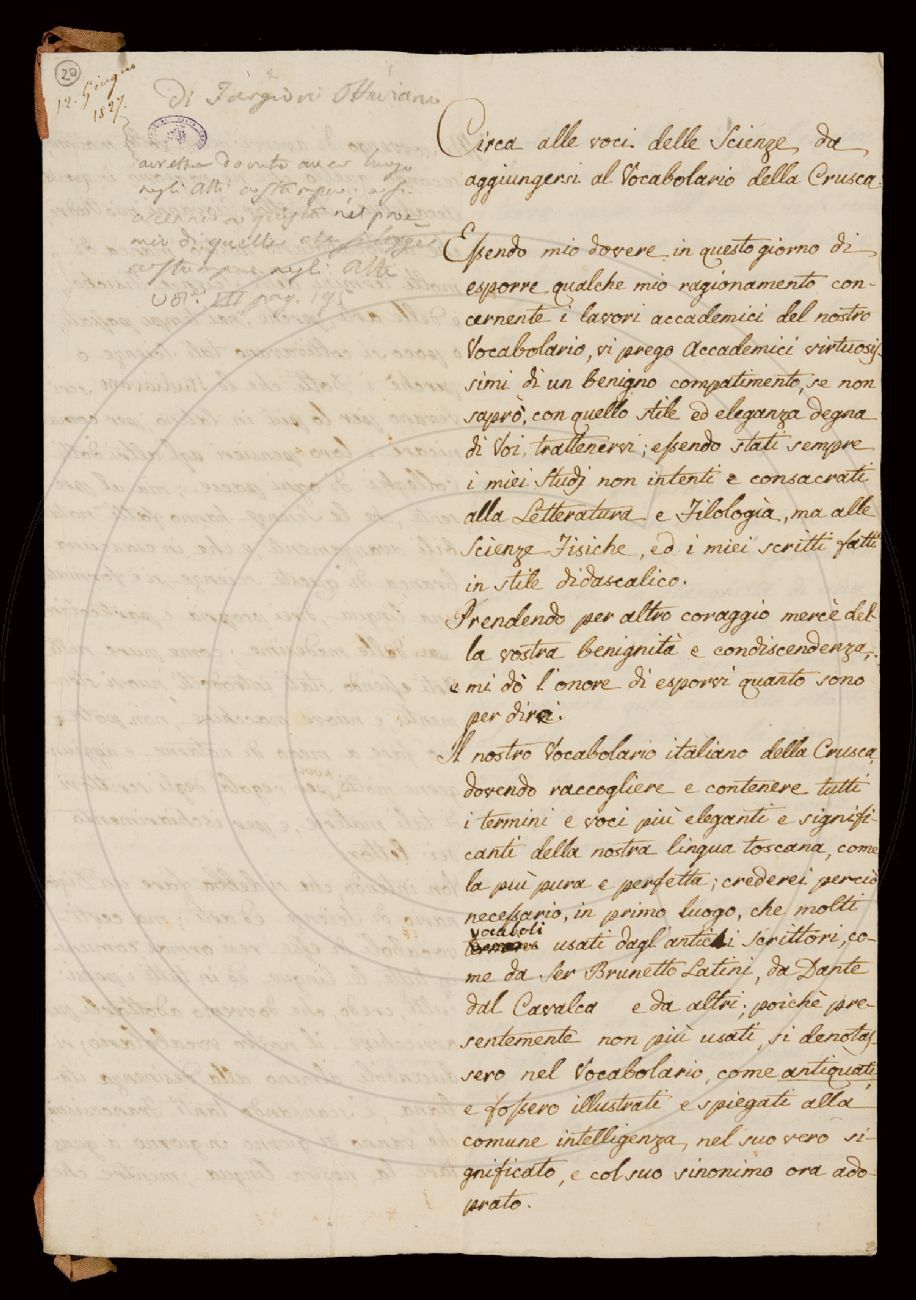 20
12. Giugno
1827.
Di Targioni Ottaviano
avrebbe dovuto aver luogo
negli Atti
nel proe
mio di quelle
negli Atti
Vol. III pag. 195
Circa alle voci delle Scienze da
aggiungersi al Vocabolario della Crusca.
Essendo mio dovere in questo giorno di
esporre qualche mio ragionamento con-
cernente i lavori accademici del nostro
Vocabolario, vi prego Accademici virtuosis-
simi di un benigno compatimento, se non
saprò, con quello stile ed eleganza degna
di Voi, trattenervi; essendo stati sempre
i miei Studj non intenti e consacrati
alla Letteratura e Filologìa, ma alle
Scienze Fisiche, ed i miei scritti fatti
in stile didascalico.
Prendendo per altro coraggio mercè del-
la vostra benignità e condiscendenza,
e mi dò l'onore di esporvi quanto sono
per dirvi.
Il nostro Vocabolario italiano della Crusca,
dovendo raccogliere e contenere tutti
i termini e voci più eleganti e signifi-
canti della nostra lingua toscana, come
la più pura e perfetta; crederei perciò
necessario, in primo luogo, che molti
vocaboli
usati dagl'antichi Scrittori, co-
me da Ser Brunetto Latini, da Dante
dal Cavalca e da altri; poichè pre-
sentemente non più usati, si denotas-
sero nel Vocabolario, come antiquati,
e fossero illustrati e spiegati alla
comune intelligenza, nel suo vero si-
gnificato, e col suo sinonimo ora ado-
prato.